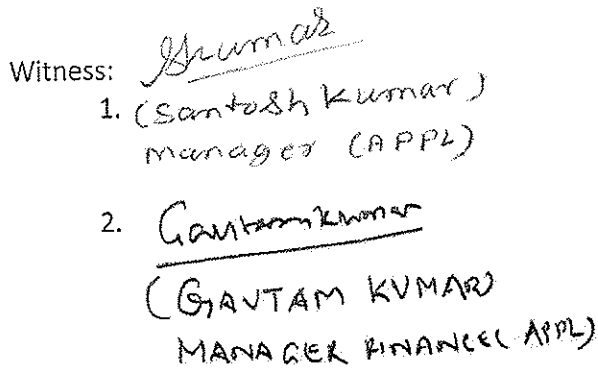 Skumar
Witness:
1. (Santosh Kumar)
Manager (APPL)
2. Gautamkumar
(GAUTAM KUMAR)
MANAGER FINANCE (APPL)